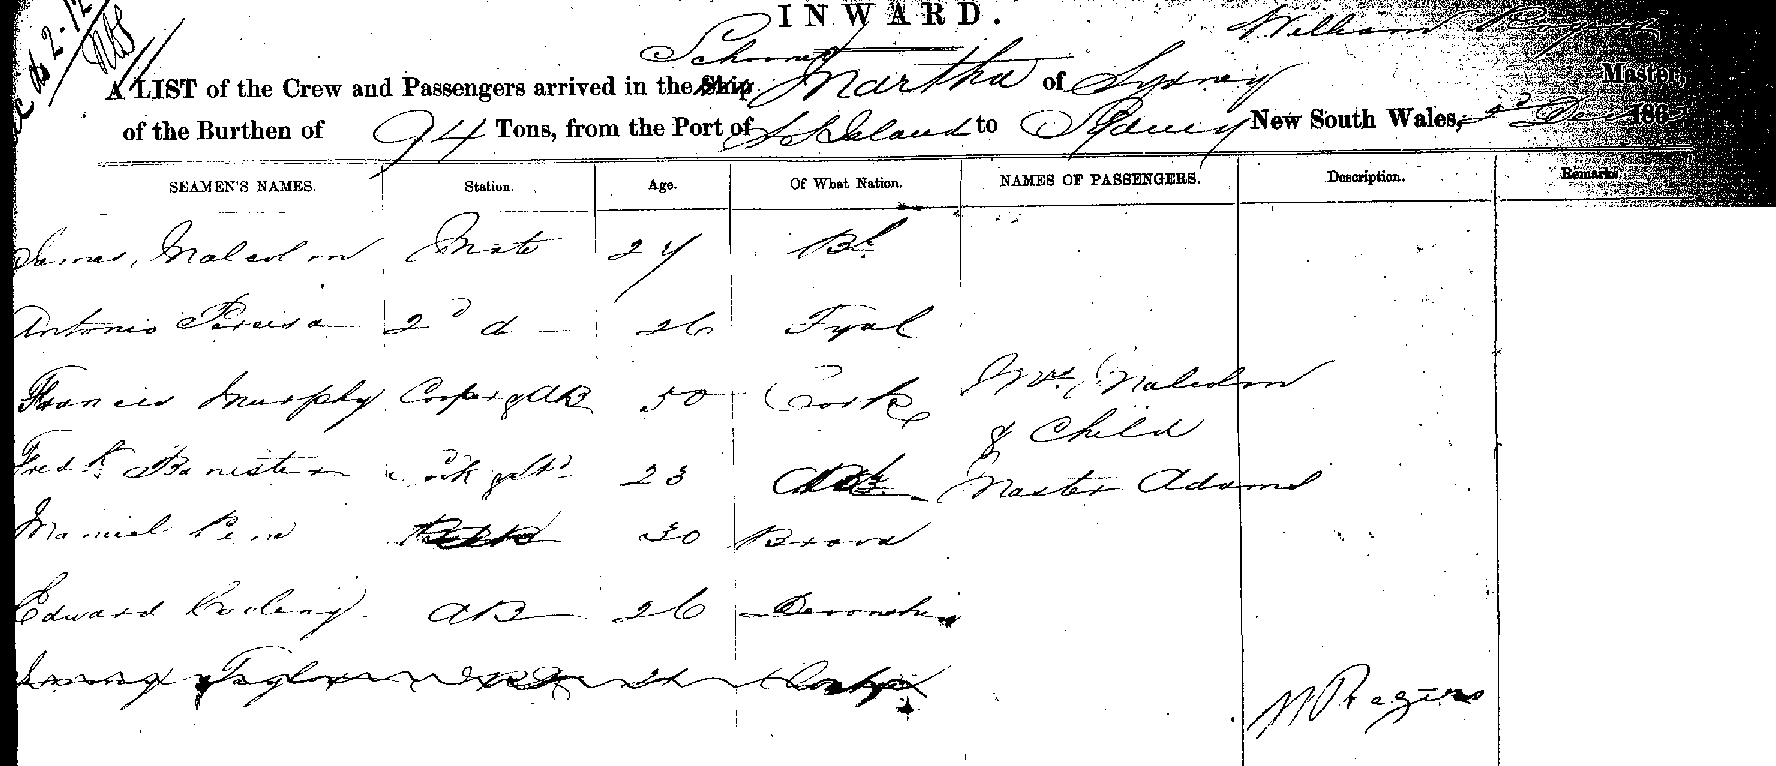 INWARD.
William
Schooner
A LIST of the Crew and Passengers arrived in the Ship Martha of Sydney Master,
of the Burthen of 94 Tons, from the Port of S S Island to Sydney New South Wales, 2d Dec 186
SEAMEN'S NAMES. Station. Age. Of What Nation. NAMES OF PASSENGERS. Description. Remarks.
James Malcolm Mate 27 Bh.
Antonio Pereira 2d do 26 Fyal
Francis Murphy Cooper & AB 50 Cork Mrs Malcolm
& Child
Fredk Banister Cook & Std 23 Master Adams
Manuel 30 Brava
Edward AB 26 Devonshire
Taylor
W Rogers